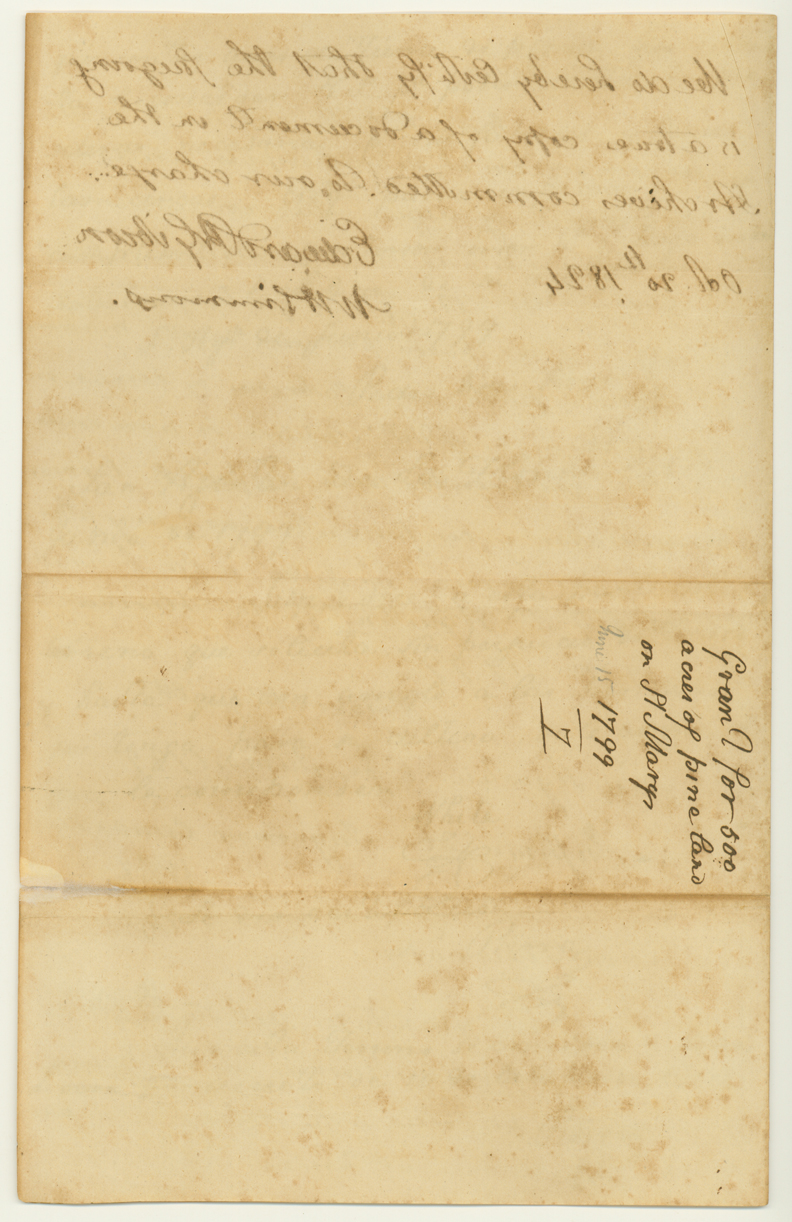 We do hereby Certify that the foregoing
is a true copy of a document in the
Archives committed to our charge.
Oct. 20th 1824
Edward R Gibson
W H Simmons.
Grant for 500
acres of pine land
on St Marys
June 15 1799
7